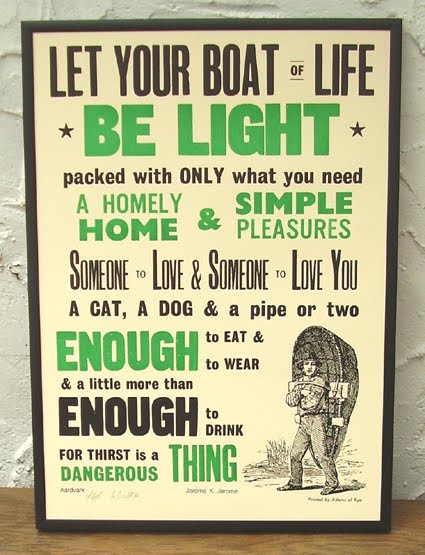 LET YOUR BOAT OF LIFE
BE LIGHT
packed with ONLY what you need
A HOMELY HOME & SIMPLE PLEASURES
SOMEONE TO LOVE & SOMEONE TO LOVE YOU
A CAT, A DOG & a pipe or two
ENOUGH to EAT & to WEAR
& a little more than
ENOUGH to DRINK
FOR THIRST is a DANGEROUS THING
Aardvark
Jerome K. Jerome
Printed by Adams of Rye